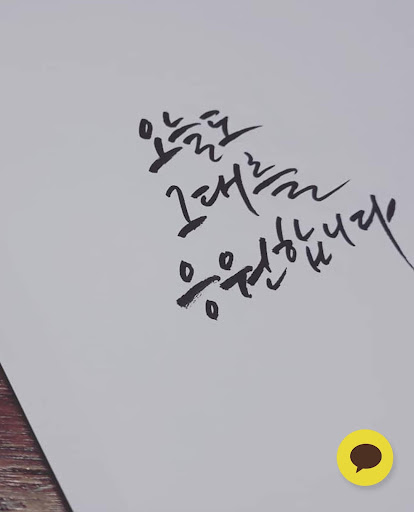 오늘도
그대를
응원합니다